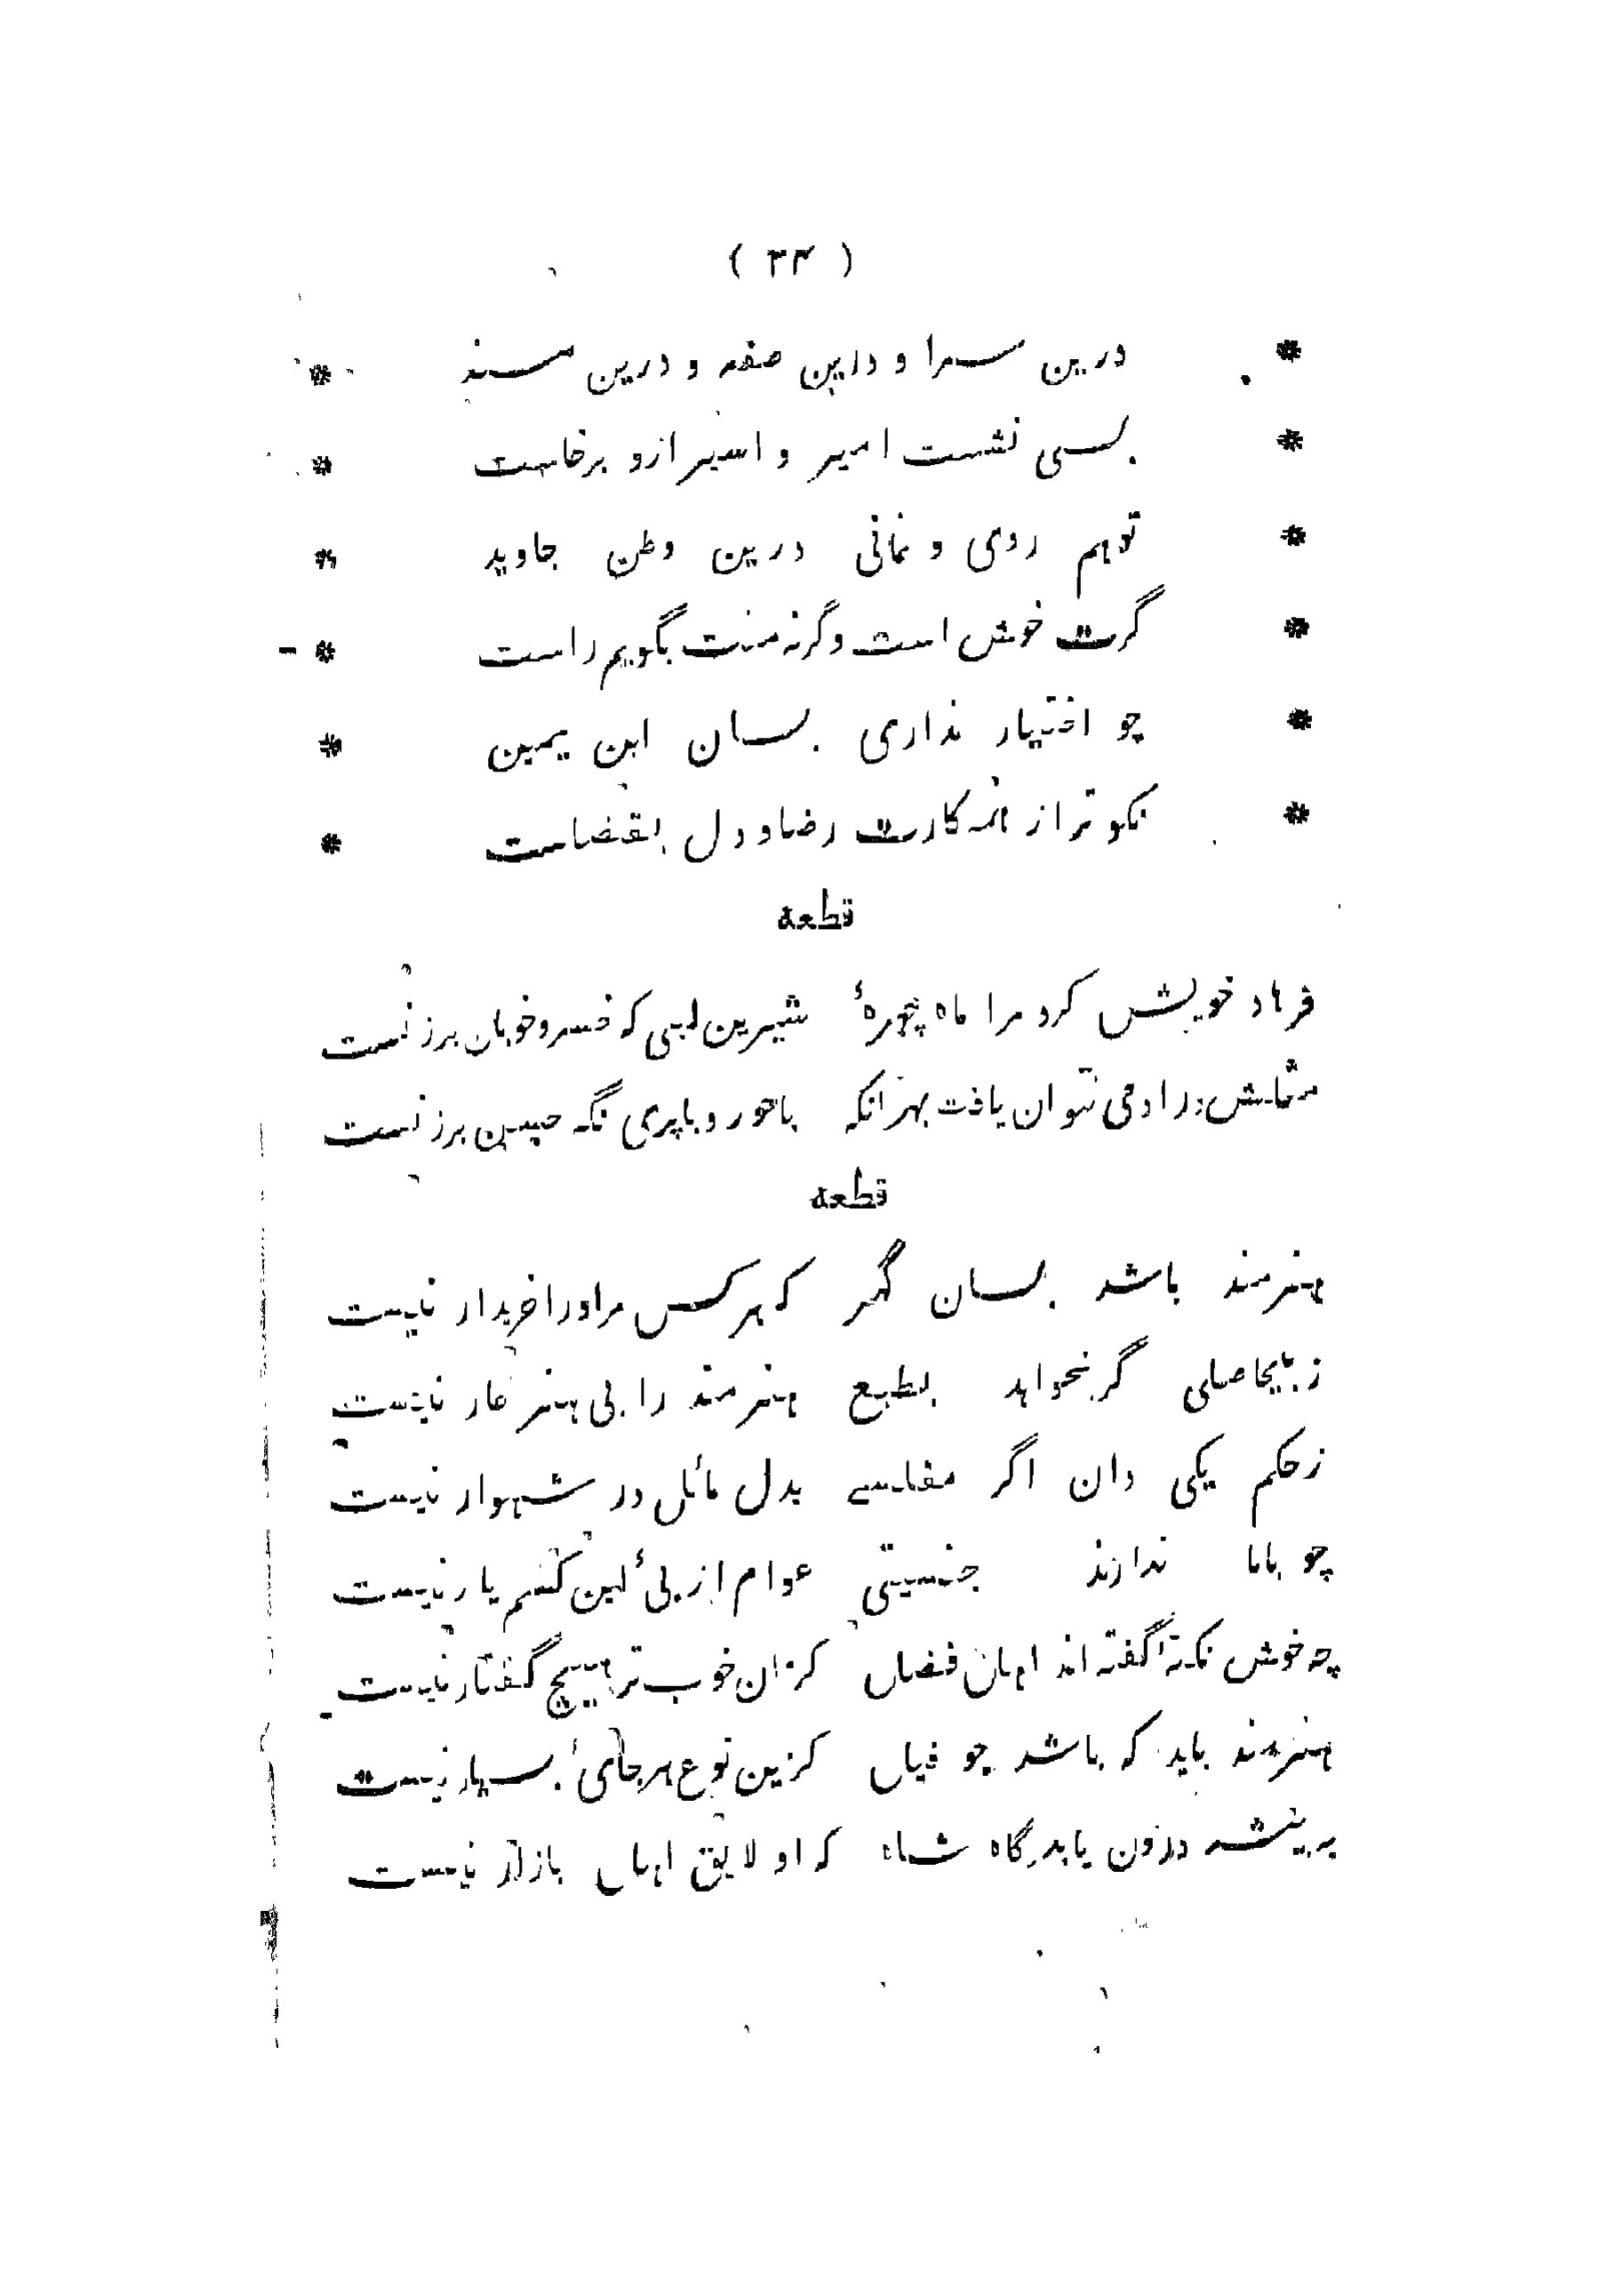 ( ۳۴ )
* درین سرا و درین صفه و درین مسند *
* بسی نشست امیر و اسیر ازو برخاست *
* توهم روی و نمانی درین وطن جاوید *
* گرت خوش است وگرنه منت بگویم راست *
* چو اختیار نداری بسان ابن یمین *
* نکوتر از همه کارت رضا و دل بقضاست *
قطعه
فرهاد خویش کرد مرا ماه چهرهٔ شیرین لبی که خسرو خوبان برزنست
مثلش در ادمی نتوان یافت بهر انکه باحور و باپری نگه برزنست
قطعه
هنرمند باشد بسان گهر که هر کس مراورا خریدار نیست
ز بیحاصلی گر نخواهد بطبع هنرمند را بی هنر عار نیست
ز حکم یکی دان اگر مفلسے بدل مائل در شهوار نیست
چو باما ندارند جنسیتی عوام از پئ این کنم یار نیست
چه خوش نکته گفته اند اهل فضل کزان خوب تر هیچ گفتار نیست
هنرمند باید که باشد چو فیل کزین نوع هر جای بسیار نیست
به بیشه درون یا بدرگاه شاه که او لایق اهل بازار نیست